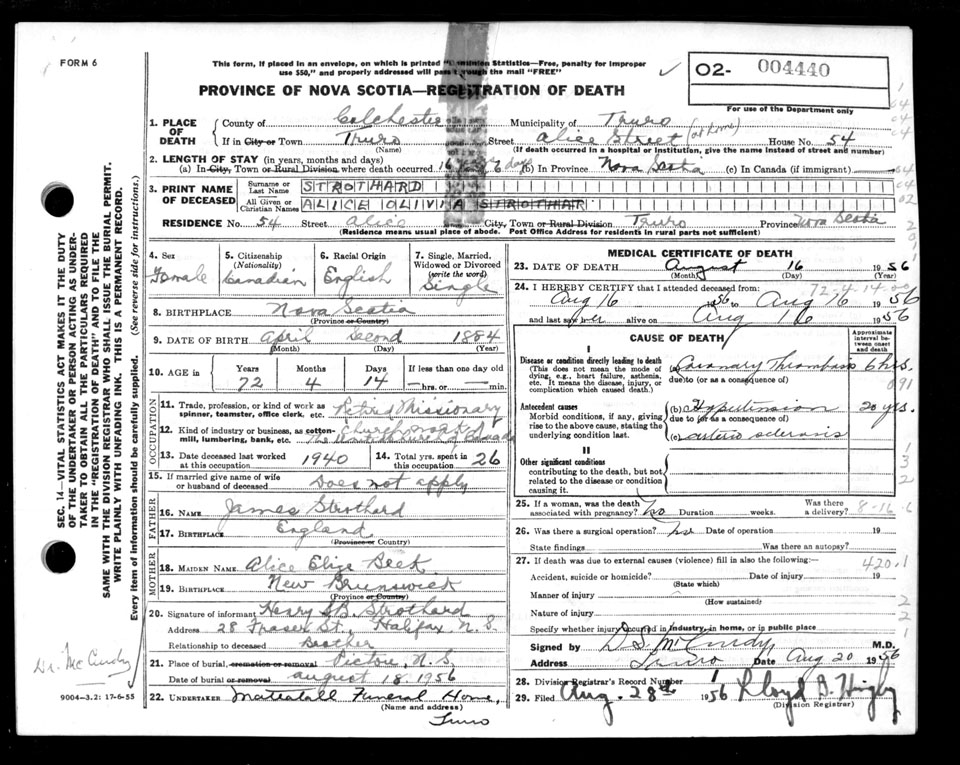 FORM 6
This form, if placed in an envelope, on which is printed "Dominion Statistics—Free, penalty for improper
use $50," and properly addressed will pass through the mail "FREE"
02- 004440
For use of the Department only
PROVINCE OF NOVA SCOTIA—REGISTRATION OF DEATH
1. PLACE OF DEATH
County of Colchester Municipality of Truro
If in City or Town Truro Street Alice Street (at home) House No. 54
(Name) (If death occurred in a hospital or institution, give the name instead of street and number)
2. LENGTH OF STAY (in years, months and days)
(a) In City, Town or Rural Division where death occurred days (b) In Province Nova Scotia (c) In Canada (if immigrant)
3. PRINT NAME OF DECEASED
Surname or Last Name STROTHARD
All Given or Christian Names ALICE OLIVIA STROTHAR
RESIDENCE No. 54 Street Alice City, Town or Rural Division Truro Province Nova Scotia
(Residence means usual place of abode. Post Office Address for residents in rural parts not sufficient)
4. Sex Female
5. Citizenship (Nationality) Canadian
6. Racial Origin English
7. Single, Married, Widowed or Divorced (write the word) Single
8. BIRTHPLACE Nova Scotia
(Province or Country)
9. DATE OF BIRTH April second 1884
(Month) (Day) (Year)
10. AGE in Years Months Days If less than one day old
72 4 14 — hrs. or — min.
OCCUPATION
11. Trade, profession, or kind of work as spinner, teamster, office clerk, etc. Retired Missionary
12. Kind of industry or business, as cotton-mill, lumbering, bank, etc. Church
13. Date deceased last worked at this occupation 1940
14. Total yrs. spent in this occupation 26
15. If married give name of wife or husband of deceased Does not apply
FATHER
16. NAME James Strothard
17. BIRTHPLACE England
(Province or Country)
MOTHER
18. MAIDEN NAME Alice Eliza Beek
19. BIRTHPLACE New Brunswick
(Province or Country)
20. Signature of informant Henry B. Strothard
Address 28 Fraser St., Halifax, N.S.
Relationship to deceased Brother
21. Place of burial, cremation or removal Pictou, N.S.
Date of burial or removal August 18, 1956
22. UNDERTAKER Mattatall Funeral Home,
(Name and address)
Truro
MEDICAL CERTIFICATE OF DEATH
23. DATE OF DEATH August 16 1956
(Month) (Day) (Year)
72-4-14-00
24. I HEREBY CERTIFY that I attended deceased from:
Aug 16 1956 to Aug 16 1956
and last saw her alive on Aug 16 1956
CAUSE OF DEATH
Approximate interval between onset and death
I
Disease or condition directly leading to death
(This does not mean the mode of dying, e.g., heart failure, asthenia, etc. It means the disease, injury, or complication which caused death.)
(a) Coronary Thrombosis 6 hrs.
due to (or as a consequence of) 091
Antecedent causes
Morbid conditions, if any, giving rise to the above cause, stating the underlying condition last.
(b) Hypertension 20 yrs.
due to (or as a consequence of)
(c) arterio sclerosis
II
Other significant conditions
contributing to the death, but not related to the disease or condition causing it.
25. If a woman, was the death associated with pregnancy? No Duration weeks. Was there a delivery? 8-16-6
26. Was there a surgical operation? No Date of operation 19
State findings Was there an autopsy?
27. If death was due to external causes (violence) fill in also the following:— 420.1
Accident, suicide or homicide? Date of injury 19
(State which)
Manner of injury
(How sustained)
Nature of injury
Specify whether injury occurred in industry, in home, or in public place
Signed by D S McCurdy M.D.
Address Truro Date Aug 20 1956
28. Division Registrar's Record Number
29. Filed Aug. 28th 1956 Lloyd B. Higby
(Division Registrar)
SEC. 14—VITAL STATISTICS ACT MAKES IT THE DUTY
OF THE UNDERTAKER OR PERSON ACTING AS UNDER-
TAKER TO OBTAIN ALL THE PARTICULARS REQUIRED
IN THE "REGISTRATION OF DEATH" AND TO FILE THE
SAME WITH THE DIVISION REGISTRAR WHO SHALL ISSUE THE BURIAL PERMIT.
WRITE PLAINLY WITH UNFADING INK. THIS IS A PERMANENT RECORD.
Every item of information should be carefully supplied. (See reverse side for instructions.)
Dr. McCurdy
9004-3.2: 17-6-55